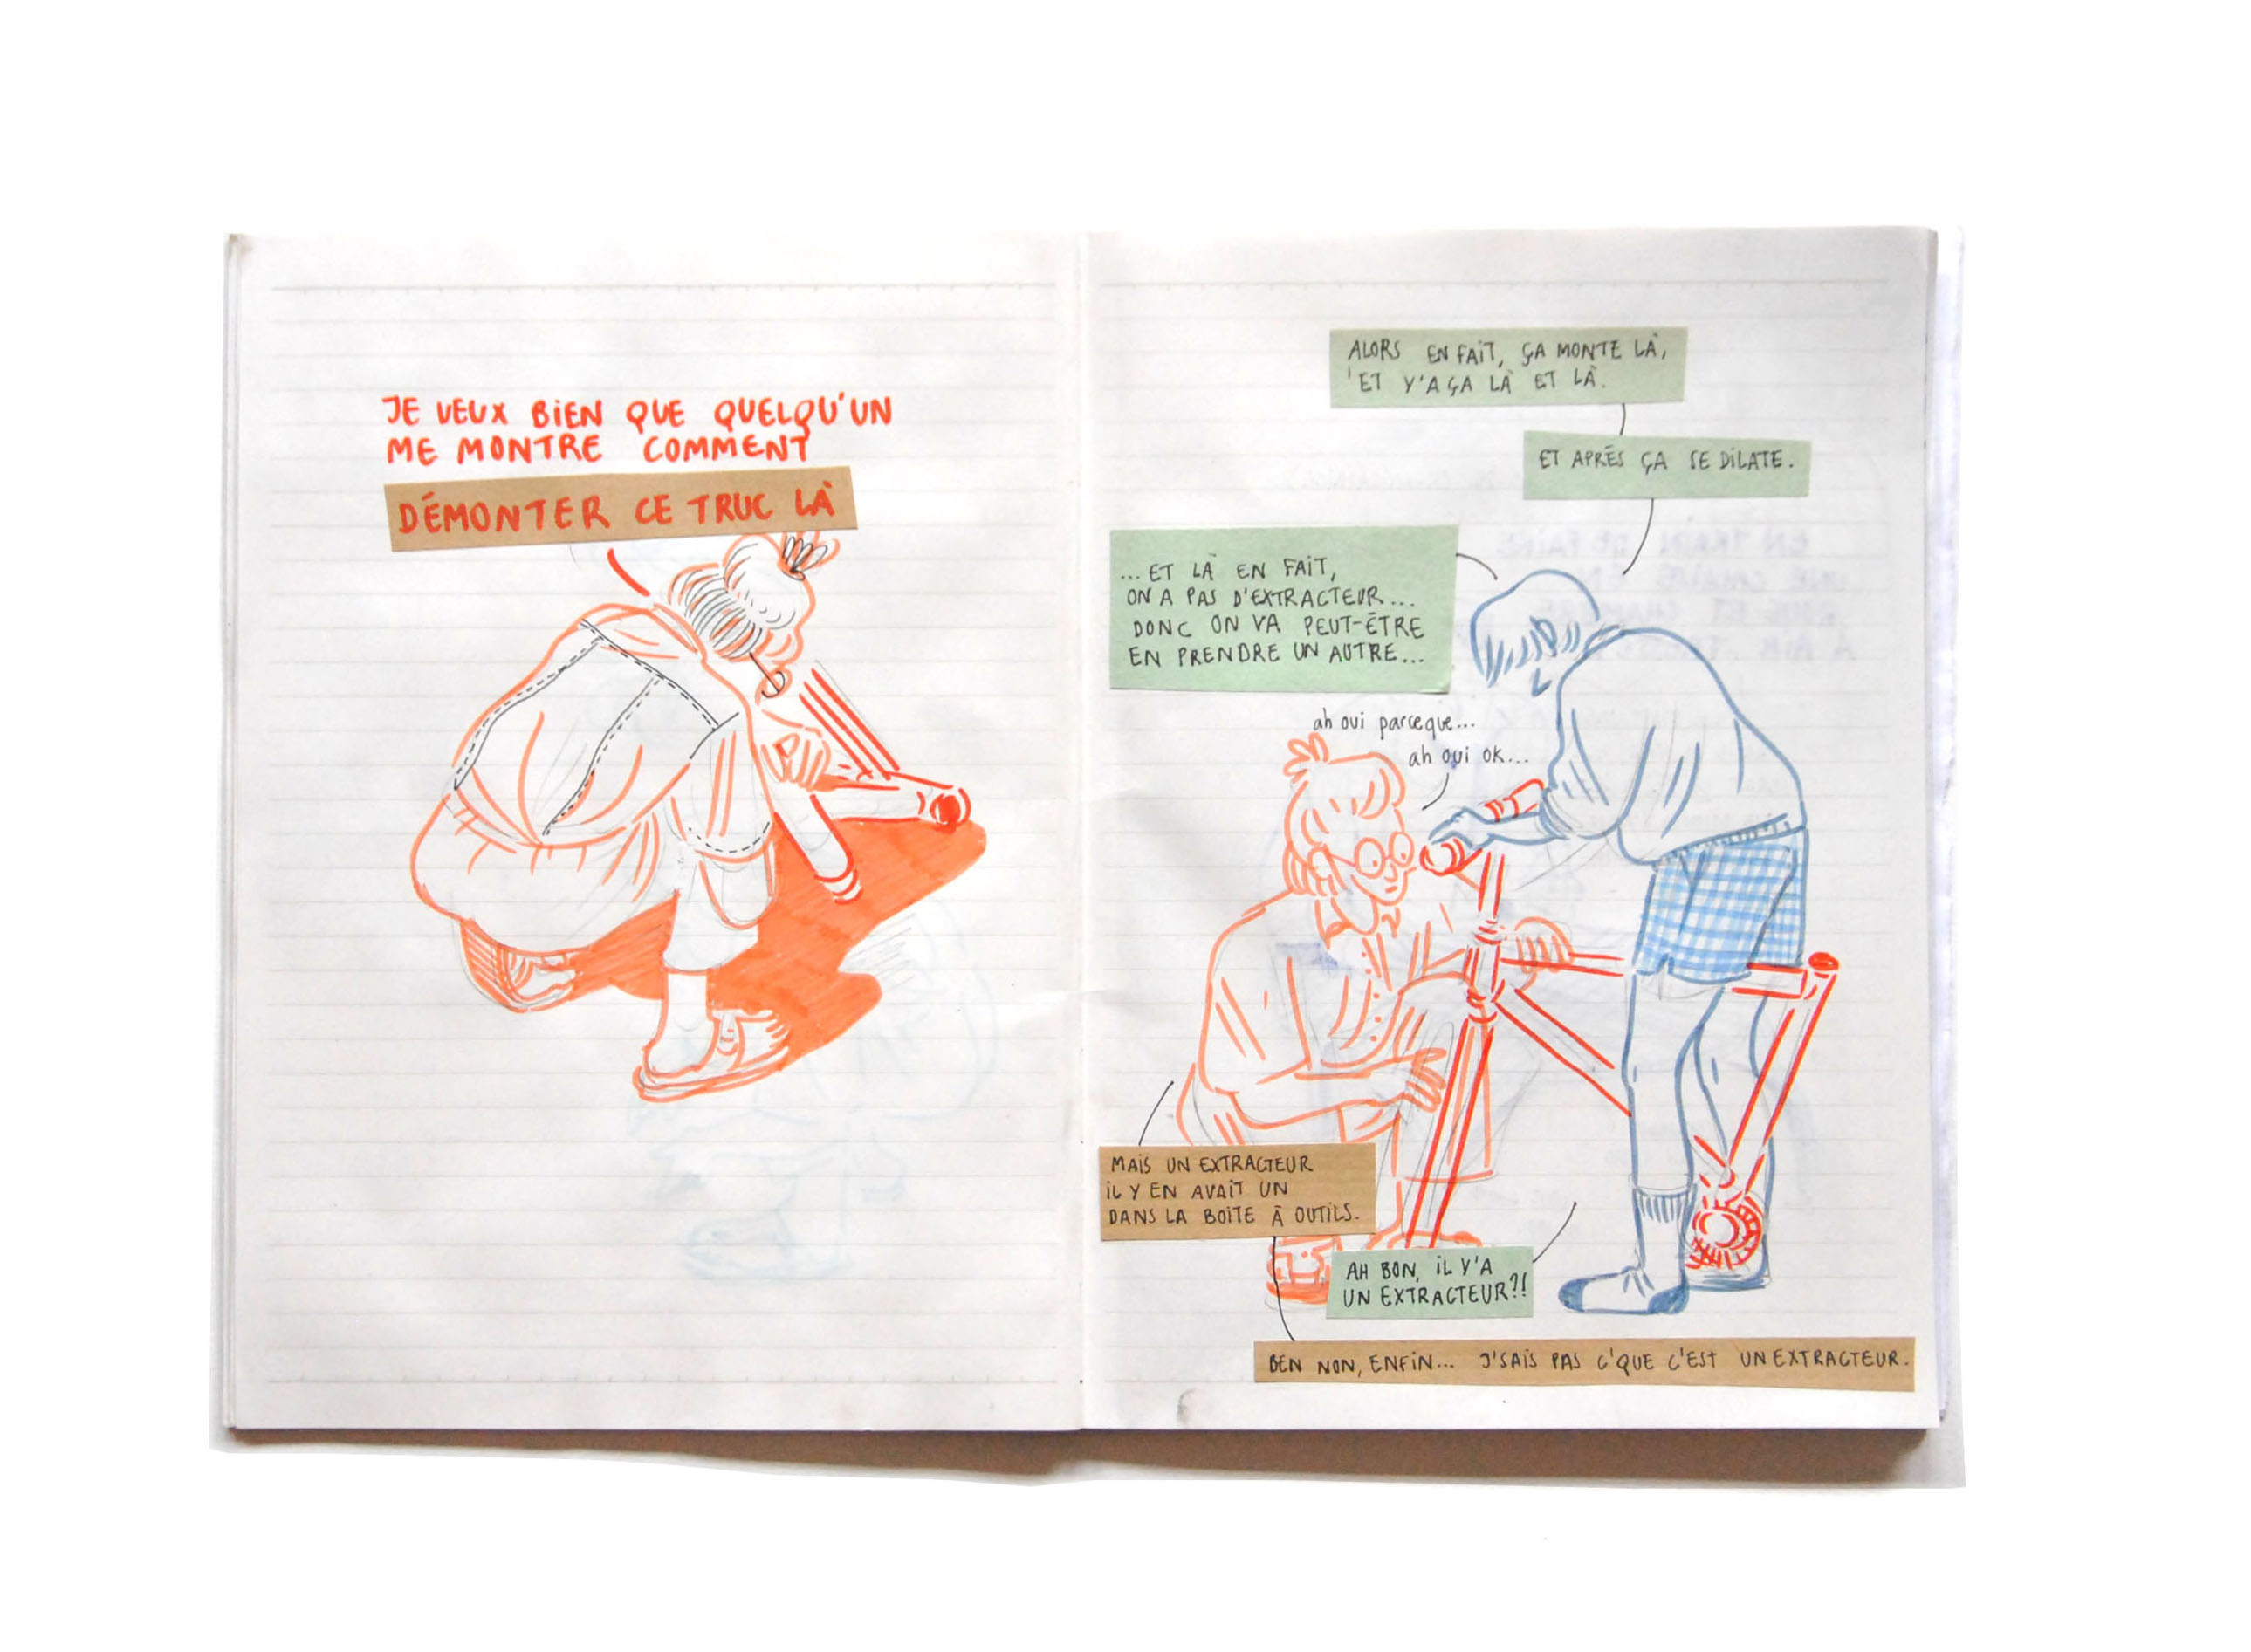 JE VEUX BIEN QUE QUELQU'UN
ME MONTRE COMMENT
DÉMONTER CE TRUC LÀ
ALORS EN FAIT, ÇA MONTE LÀ,
ET Y'A ÇA LÀ ET LÀ.
ET APRÈS ÇA SE DILATE.
...ET LÀ EN FAIT,
ON A PAS D'EXTRACTEUR...
DONC ON VA PEUT-ÊTRE
EN PRENDRE UN AUTRE...
ah oui parceque...
ah oui ok...
MAIS UN EXTRACTEUR
IL Y EN AVAIT UN
DANS LA BOÎTE À OUTILS.
AH BON, IL Y'A
UN EXTRACTEUR?!
BEN NON, ENFIN... J'SAIS PAS C'QUE C'EST UN EXTRACTEUR.